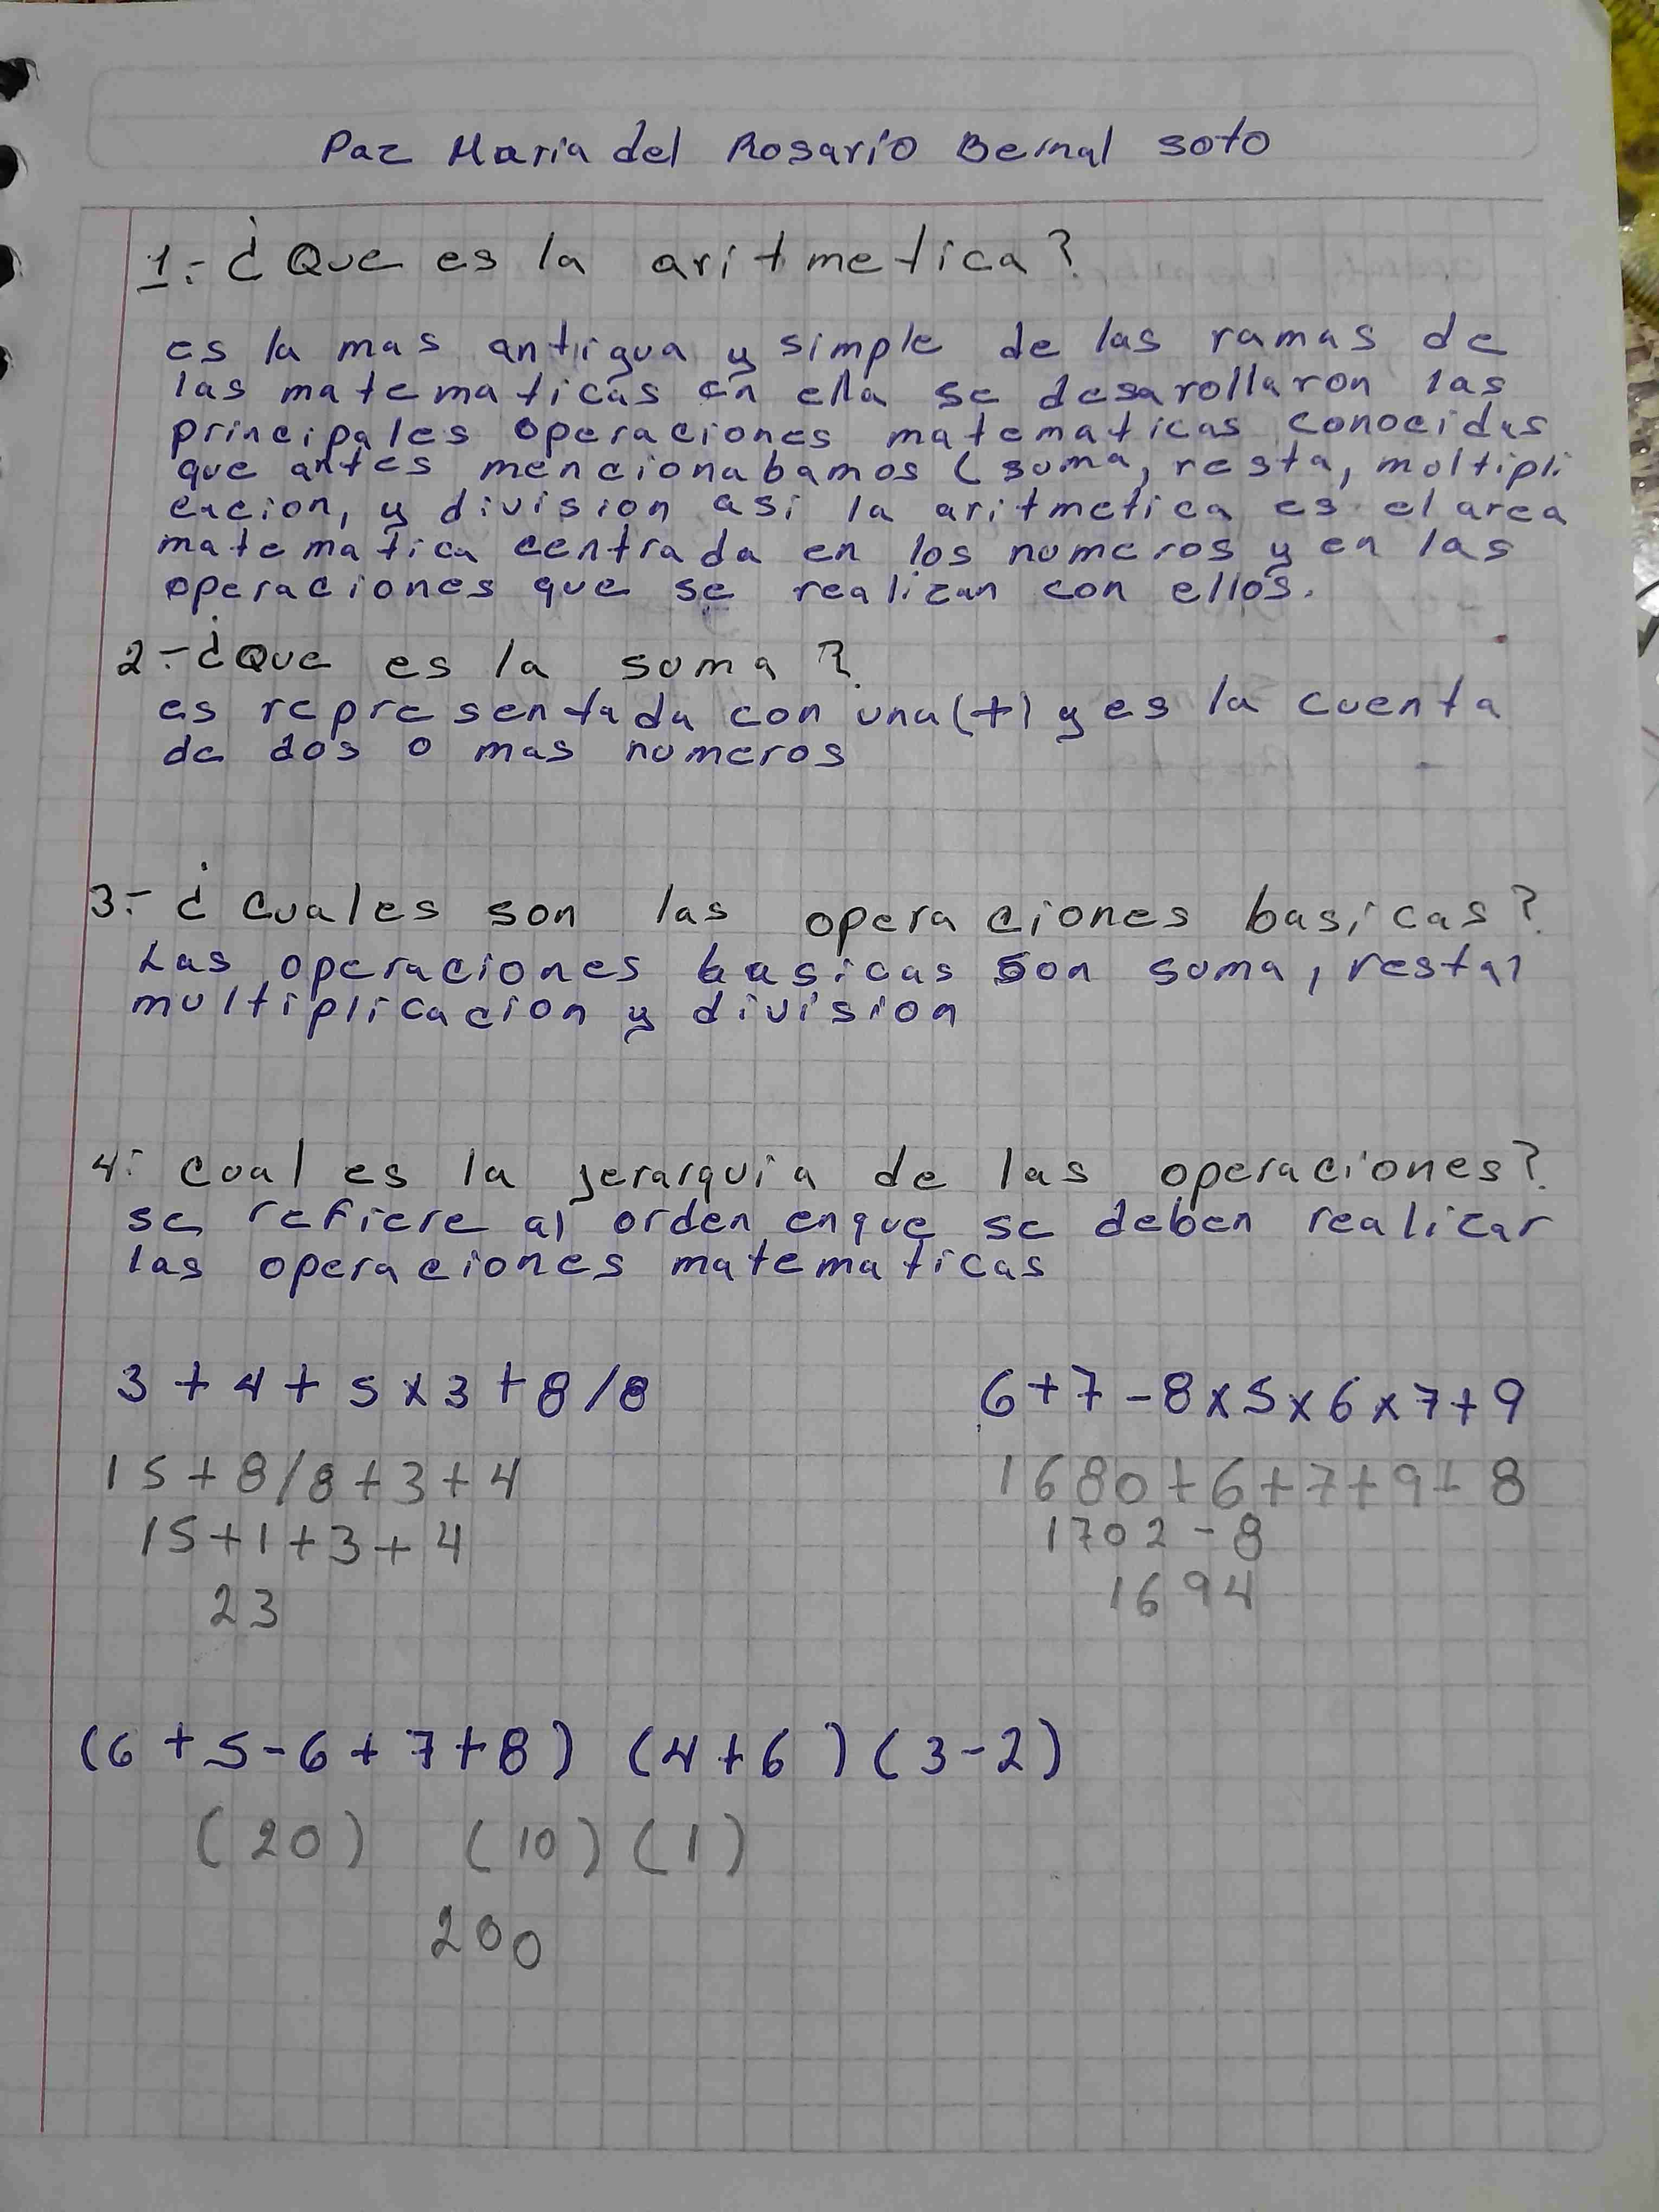 Paz Maria del Rosario Bernal soto
1.- ¿Que es la aritmetica?
es la mas antigua y simple de las ramas de
las matematicas en ella se desarollaron las
principales operaciones matematicas conocidas
que antes mencionabamos (suma, resta, multipli
cacion, y division asi la aritmetica es el area
matematica centrada en los numeros y en las
operaciones que se realizan con ellos.
2-¿Que es la suma?
es representada con una (+) y es la cuenta
de dos o mas numeros
3- ¿cuales son las operaciones basicas?
Las operaciones basicas son suma, resta,
multiplicacion y division
4- cual es la jerarquia de las operaciones?
se refiere al orden en que se deben realizar
las operaciones matematicas
3+4+5x3+8/8
15+8/8+3+4
15+1+3+4
23
6+7-8x5x6x7+9
1680+6+7+9-8
1702-8
1694
(6+5-6+7+8) (4+6) (3-2)
(20) (10) (1)
200